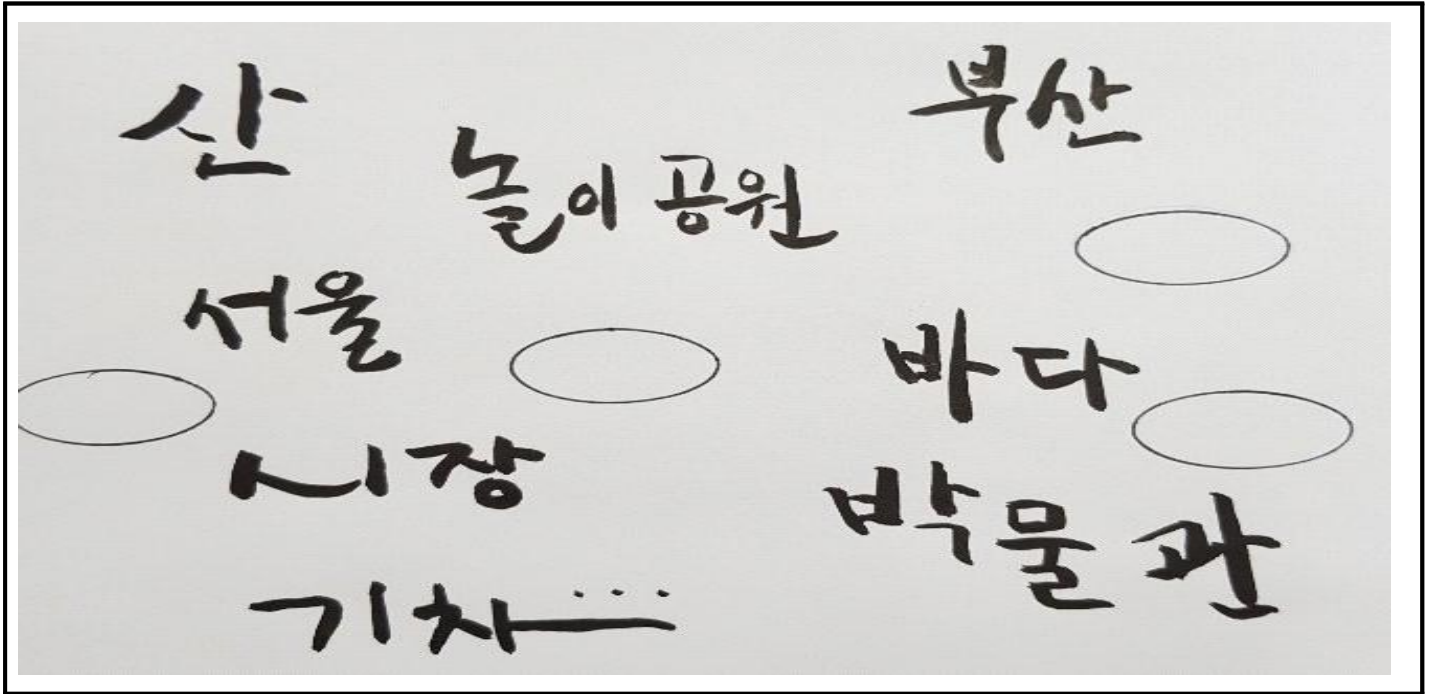 산
부산
놀이 공원
서울
바다
시장
박물관
기차...